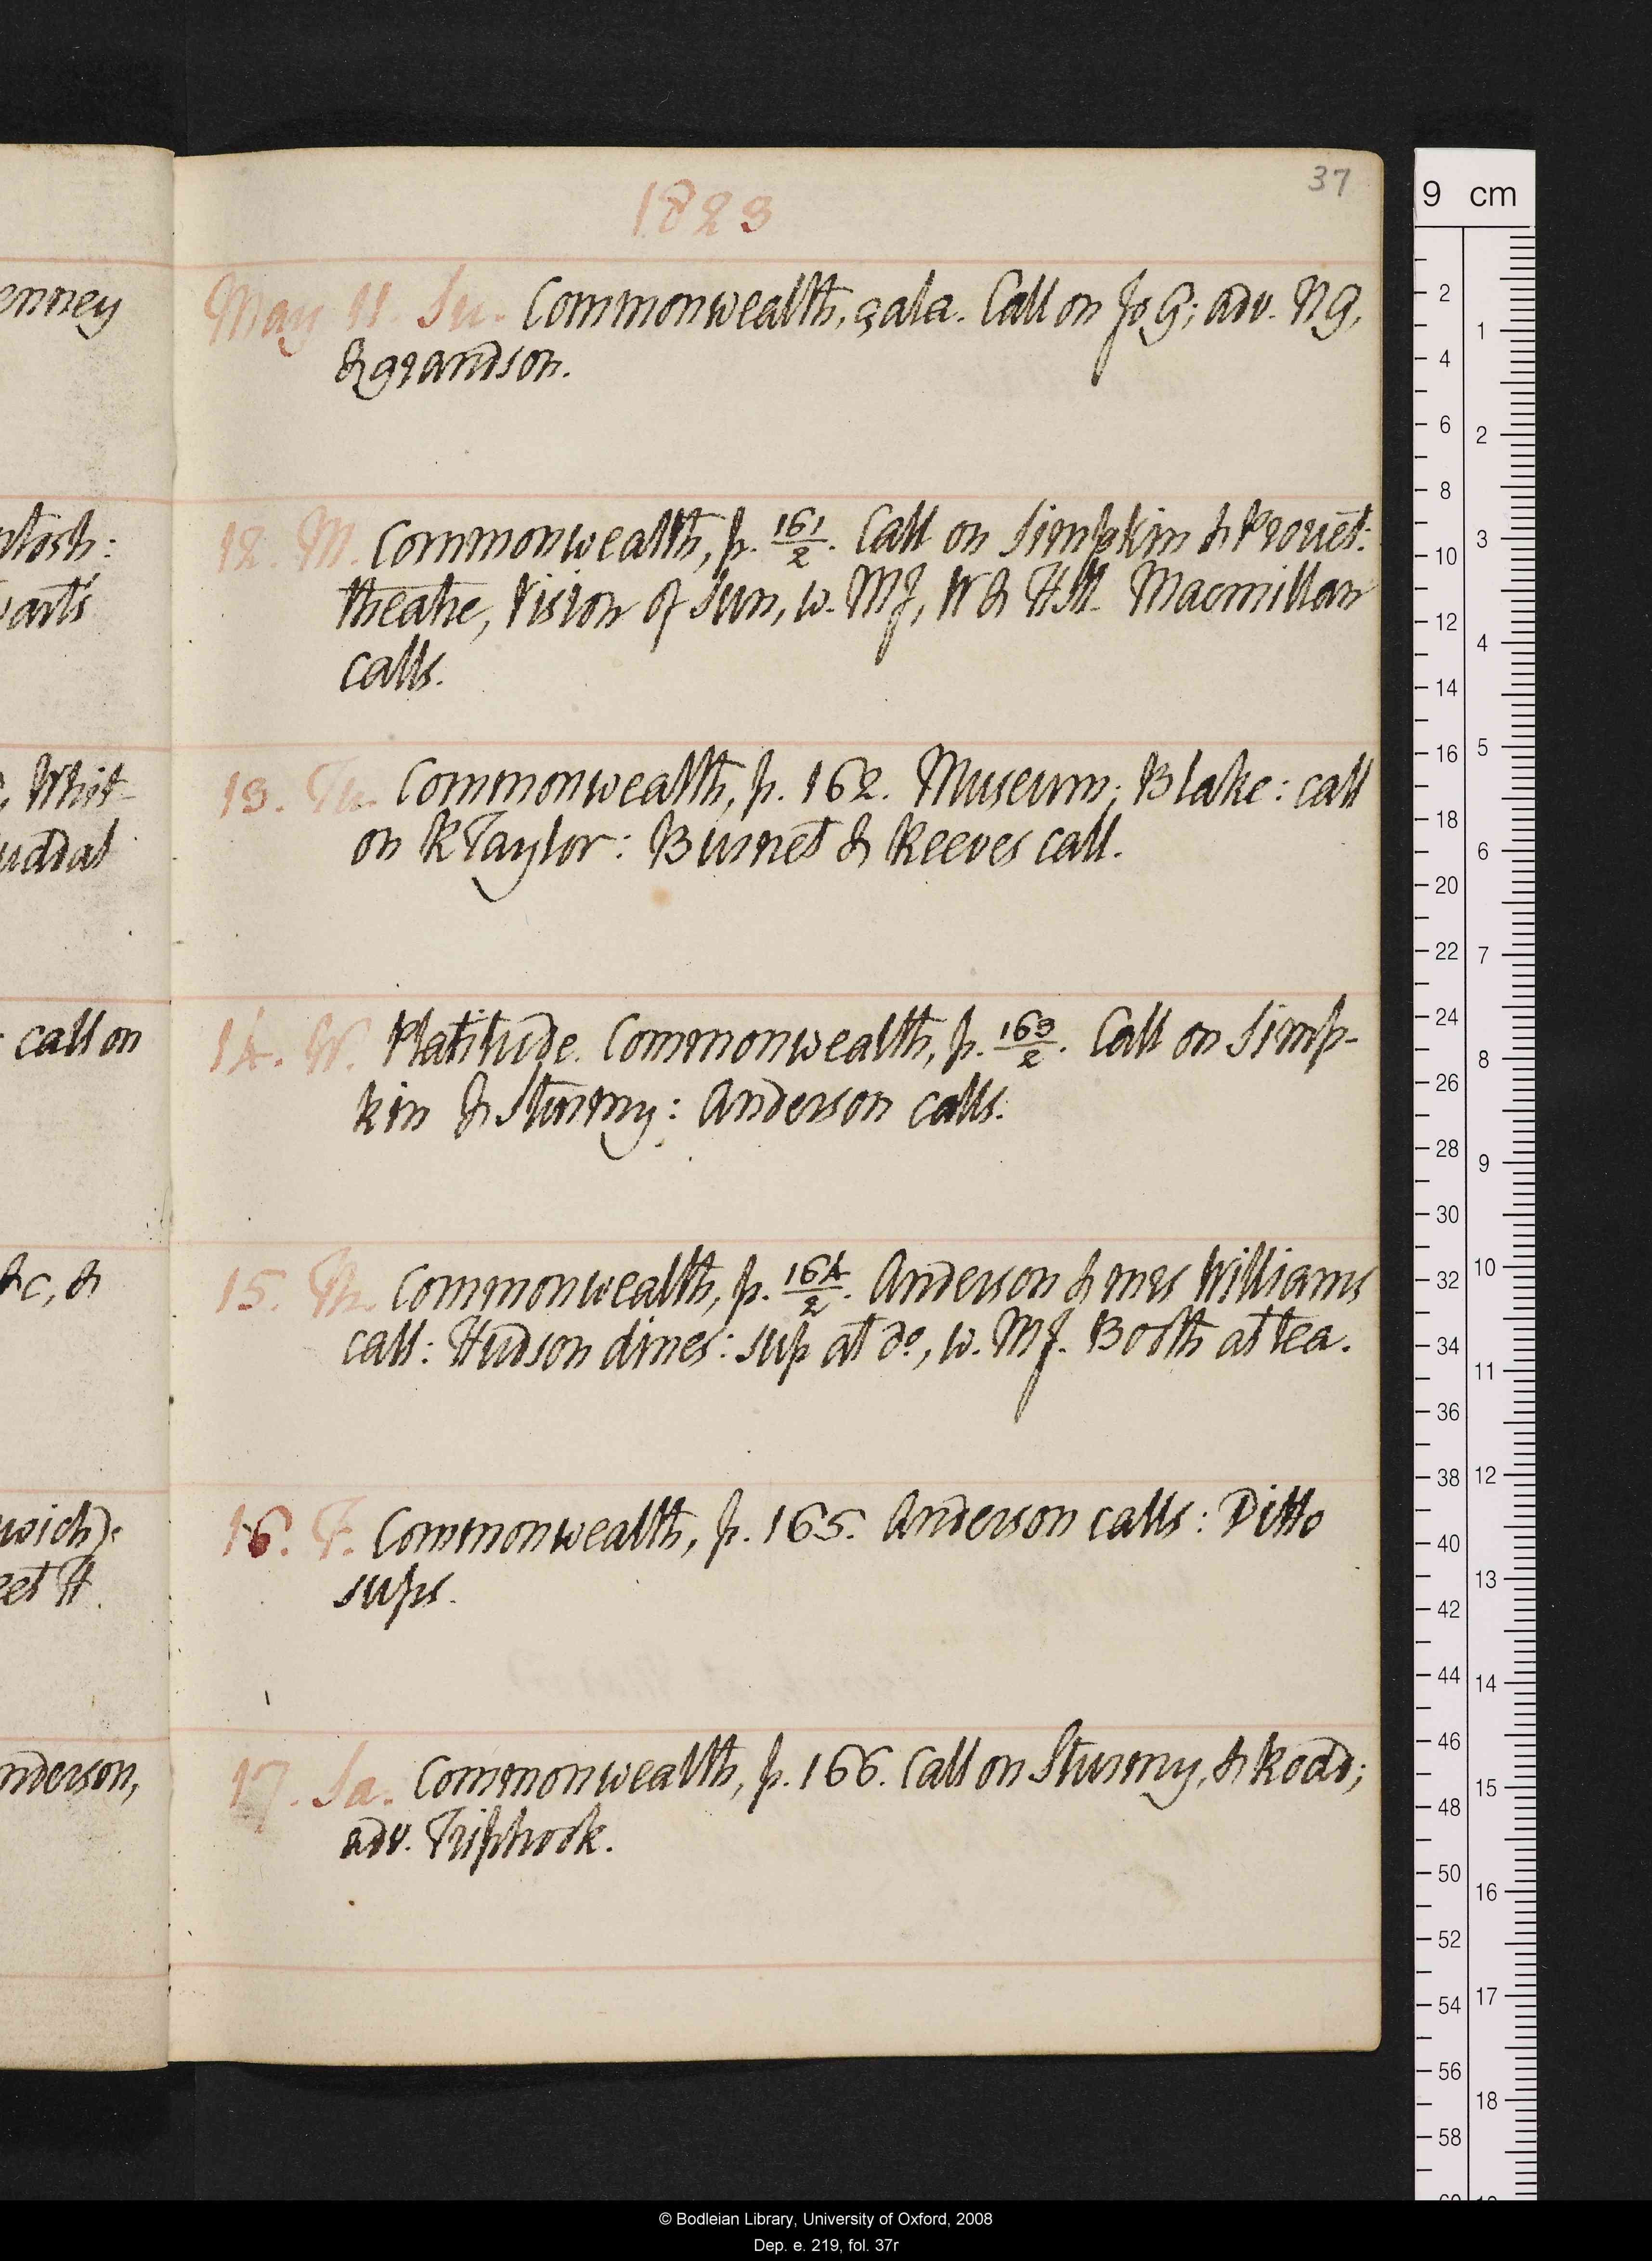 37
1823
May 11. Su. Commonwealth, gala. Call on Jo G; adv. N G,
& grandson.
12. M. Commonwealth, p. 161/2. Call on Simpkin & Rouet:
theatre, Vision of Sun, w. MJ, W & HM. Macmillan
calls.
13. Tu. Commonwealth, p. 162. Museum; Blake: call
on R Taylor: Burnet & Reeves call.
14. W. Platitude. Commonwealth, p. 163/2. Call on Simp-
kin & Sturmy: Anderson calls.
15. Th. Commonwealth, p. 164/2. Anderson & mrs Williams
call: Hudson dines: sup at do, w. MJ. Booth at tea.
16. F. Commonwealth, p. 165. Anderson calls: Ditto
sups.
17. Sa. Commonwealth, p. 166. Call on Sturmy, & Rodd;
adv. Triphook.
enney
ntosh:
warts
, Whit-
uadal
call on
&c, &
wich):
eet H.
nderson,
9 cm
2 4 6 8 10 12 14 16 18 20 22 24 26 28 30 32 34 36 38 40 42 44 46 48 50 52 54 56 58
1 2 3 4 5 6 7 8 9 10 11 12 13 14 15 16 17 18
© Bodleian Library, University of Oxford, 2008
Dep. e. 219, fol. 37r